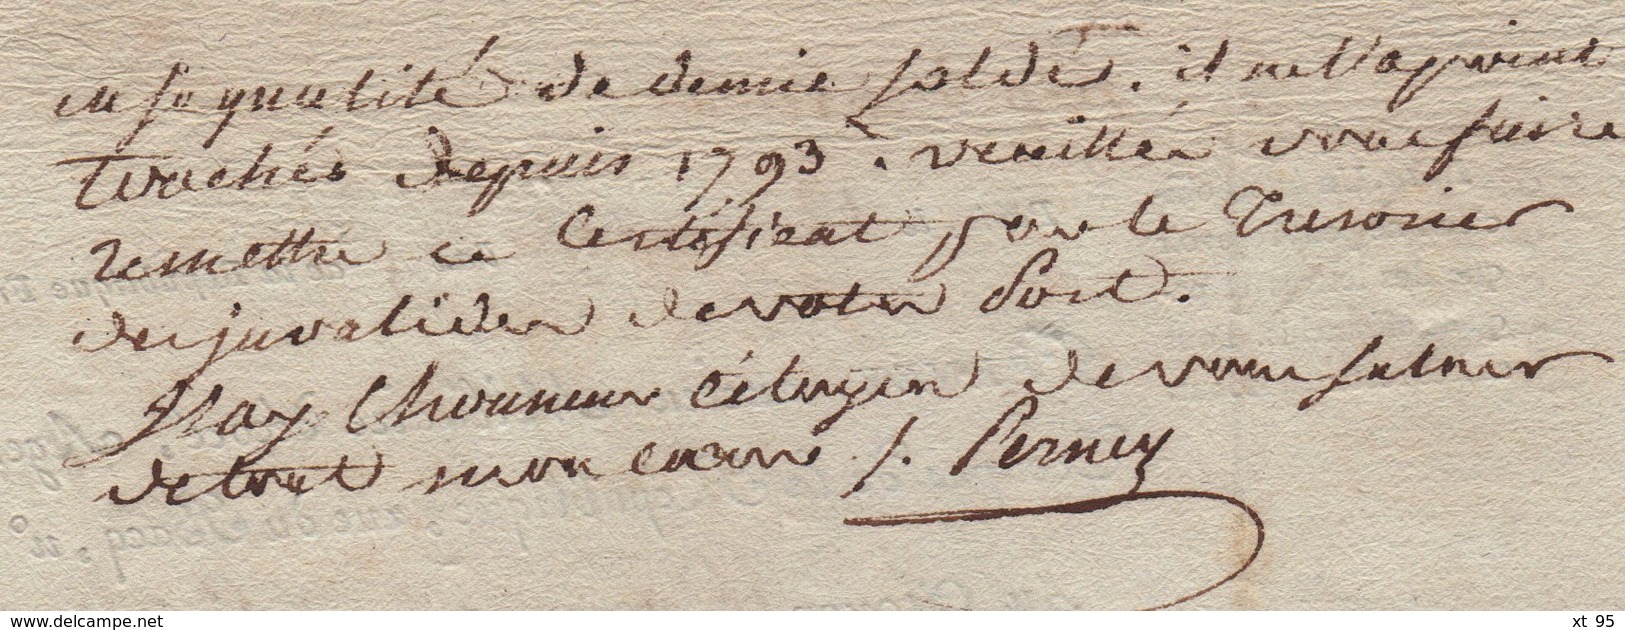 en sa qualité de demie solde. il ne l'a point
touchés depuis 1793. veuillés vous faire
remettre ce Certificat par le Tresorier
des invalides de votre Port.
J'ay l'honneur Citoyen de vous saluer
de tout mon coeur. /. Perney
www.delcampe.net
xt 95